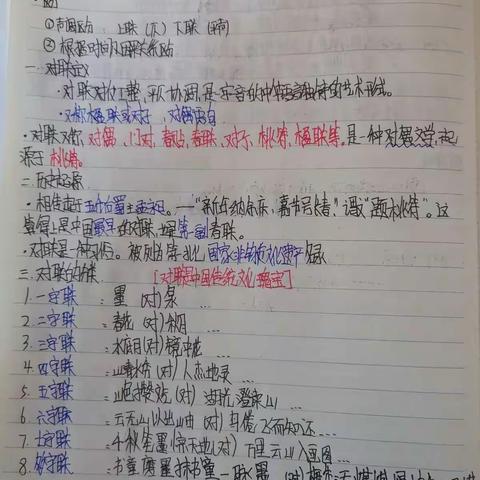 ①声调区分:上联(仄)下联(平)
②根据时间及因果关系区分
一.对联定义
·对联对仗工整,平仄协调,是一字一音的中华语言独特的艺术形式。
·又称楹联或对子,对偶语句
·对联又称对偶、门对、春贴、春联、对子、桃符、楹联等,是一种对偶文学,起
源于桃符。
二.历史起源
·相传起于五代后蜀主孟昶。——“新年纳余庆,嘉节号长春”,谓“题桃符”。这
要算上是中国最早的对联,也是第一副春联。
·对联是一种习俗。被列为第一批国家非物质文化遗产名录
[对联是中国传统文化瑰宝]
三.对联的分类
1.一字联:墨(对)泉
2.二字联:春花(对)秋月 ...
3.三字联:水底月(对)镜中花 ...
4.四字联:山青水秀(对)人杰地灵 ...
5.五字联:
6.六字联:云无心以出岫(对)鸟倦飞而知还 ...
7.七字联:千秋笔墨惊天地(对)万里云山入画图
8.